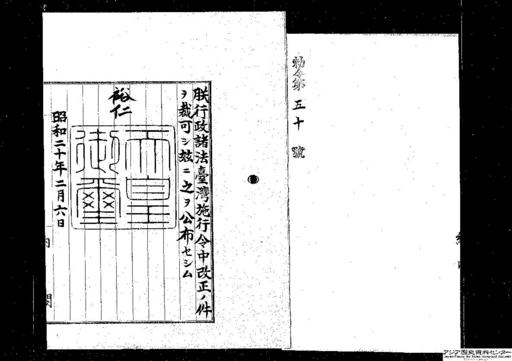 勅令第五十號
朕行政諸法臺灣施行令中改正ノ件
ヲ裁可シ茲ニ之ヲ公布セシム
裕仁
天皇御璽
昭和二十年二月六日
内閣
アジア歴史資料センター